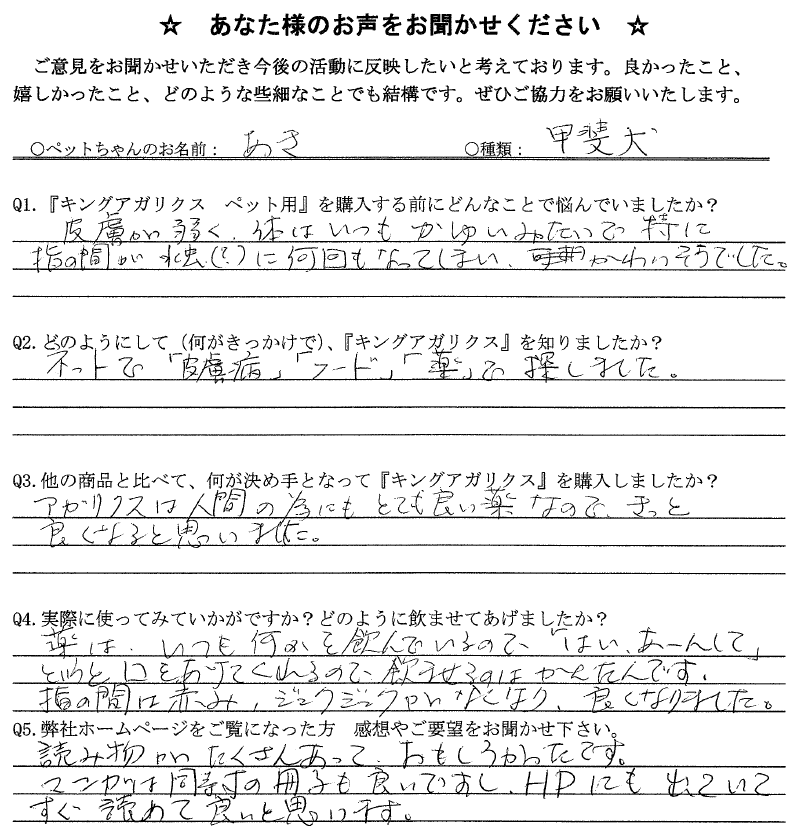 ☆ あなた様のお声をお聞かせください ☆
ご意見をお聞かせいただき今後の活動に反映したいと考えております。良かったこと、
嬉しかったこと、どのような些細なことでも結構です。ぜひご協力をお願いいたします。
○ペットちゃんのお名前： あき ○種類： 甲斐犬
Q1.『キングアガリクス ペット用』を購入する前にどんなことで悩んでいましたか？
皮膚が弱く、体はいつもかゆいみたいで特に
指の間が 虫(?)に何回もなってしまい、かわいそうでした。
Q2.どのようにして（何がきっかけで）、『キングアガリクス』を知りましたか？
ネットで「皮膚病」「フード」「薬」で探しました。
Q3.他の商品と比べて、何が決め手となって『キングアガリクス』を購入しましたか？
アガリクスは人間の為にもとても良い薬なので、きっと
良くなると思いました。
Q4.実際に使ってみていかがですか？どのように飲ませてあげましたか？
薬は、いつも何かを飲んでいるので、「はい、あーんして」
というと口をあけてくれるので、飲ませるのはかんたんです。
指の間は赤み，ジュクジュクがなくなり、良くなりました。
Q5.弊社ホームページをご覧になった方 感想やご要望をお聞かせ下さい。
読み物がたくさんあって、おもしろかったです。
マンガは同封の冊子も良いですし、HPにも出ていて
すぐ読めて良いと思います。